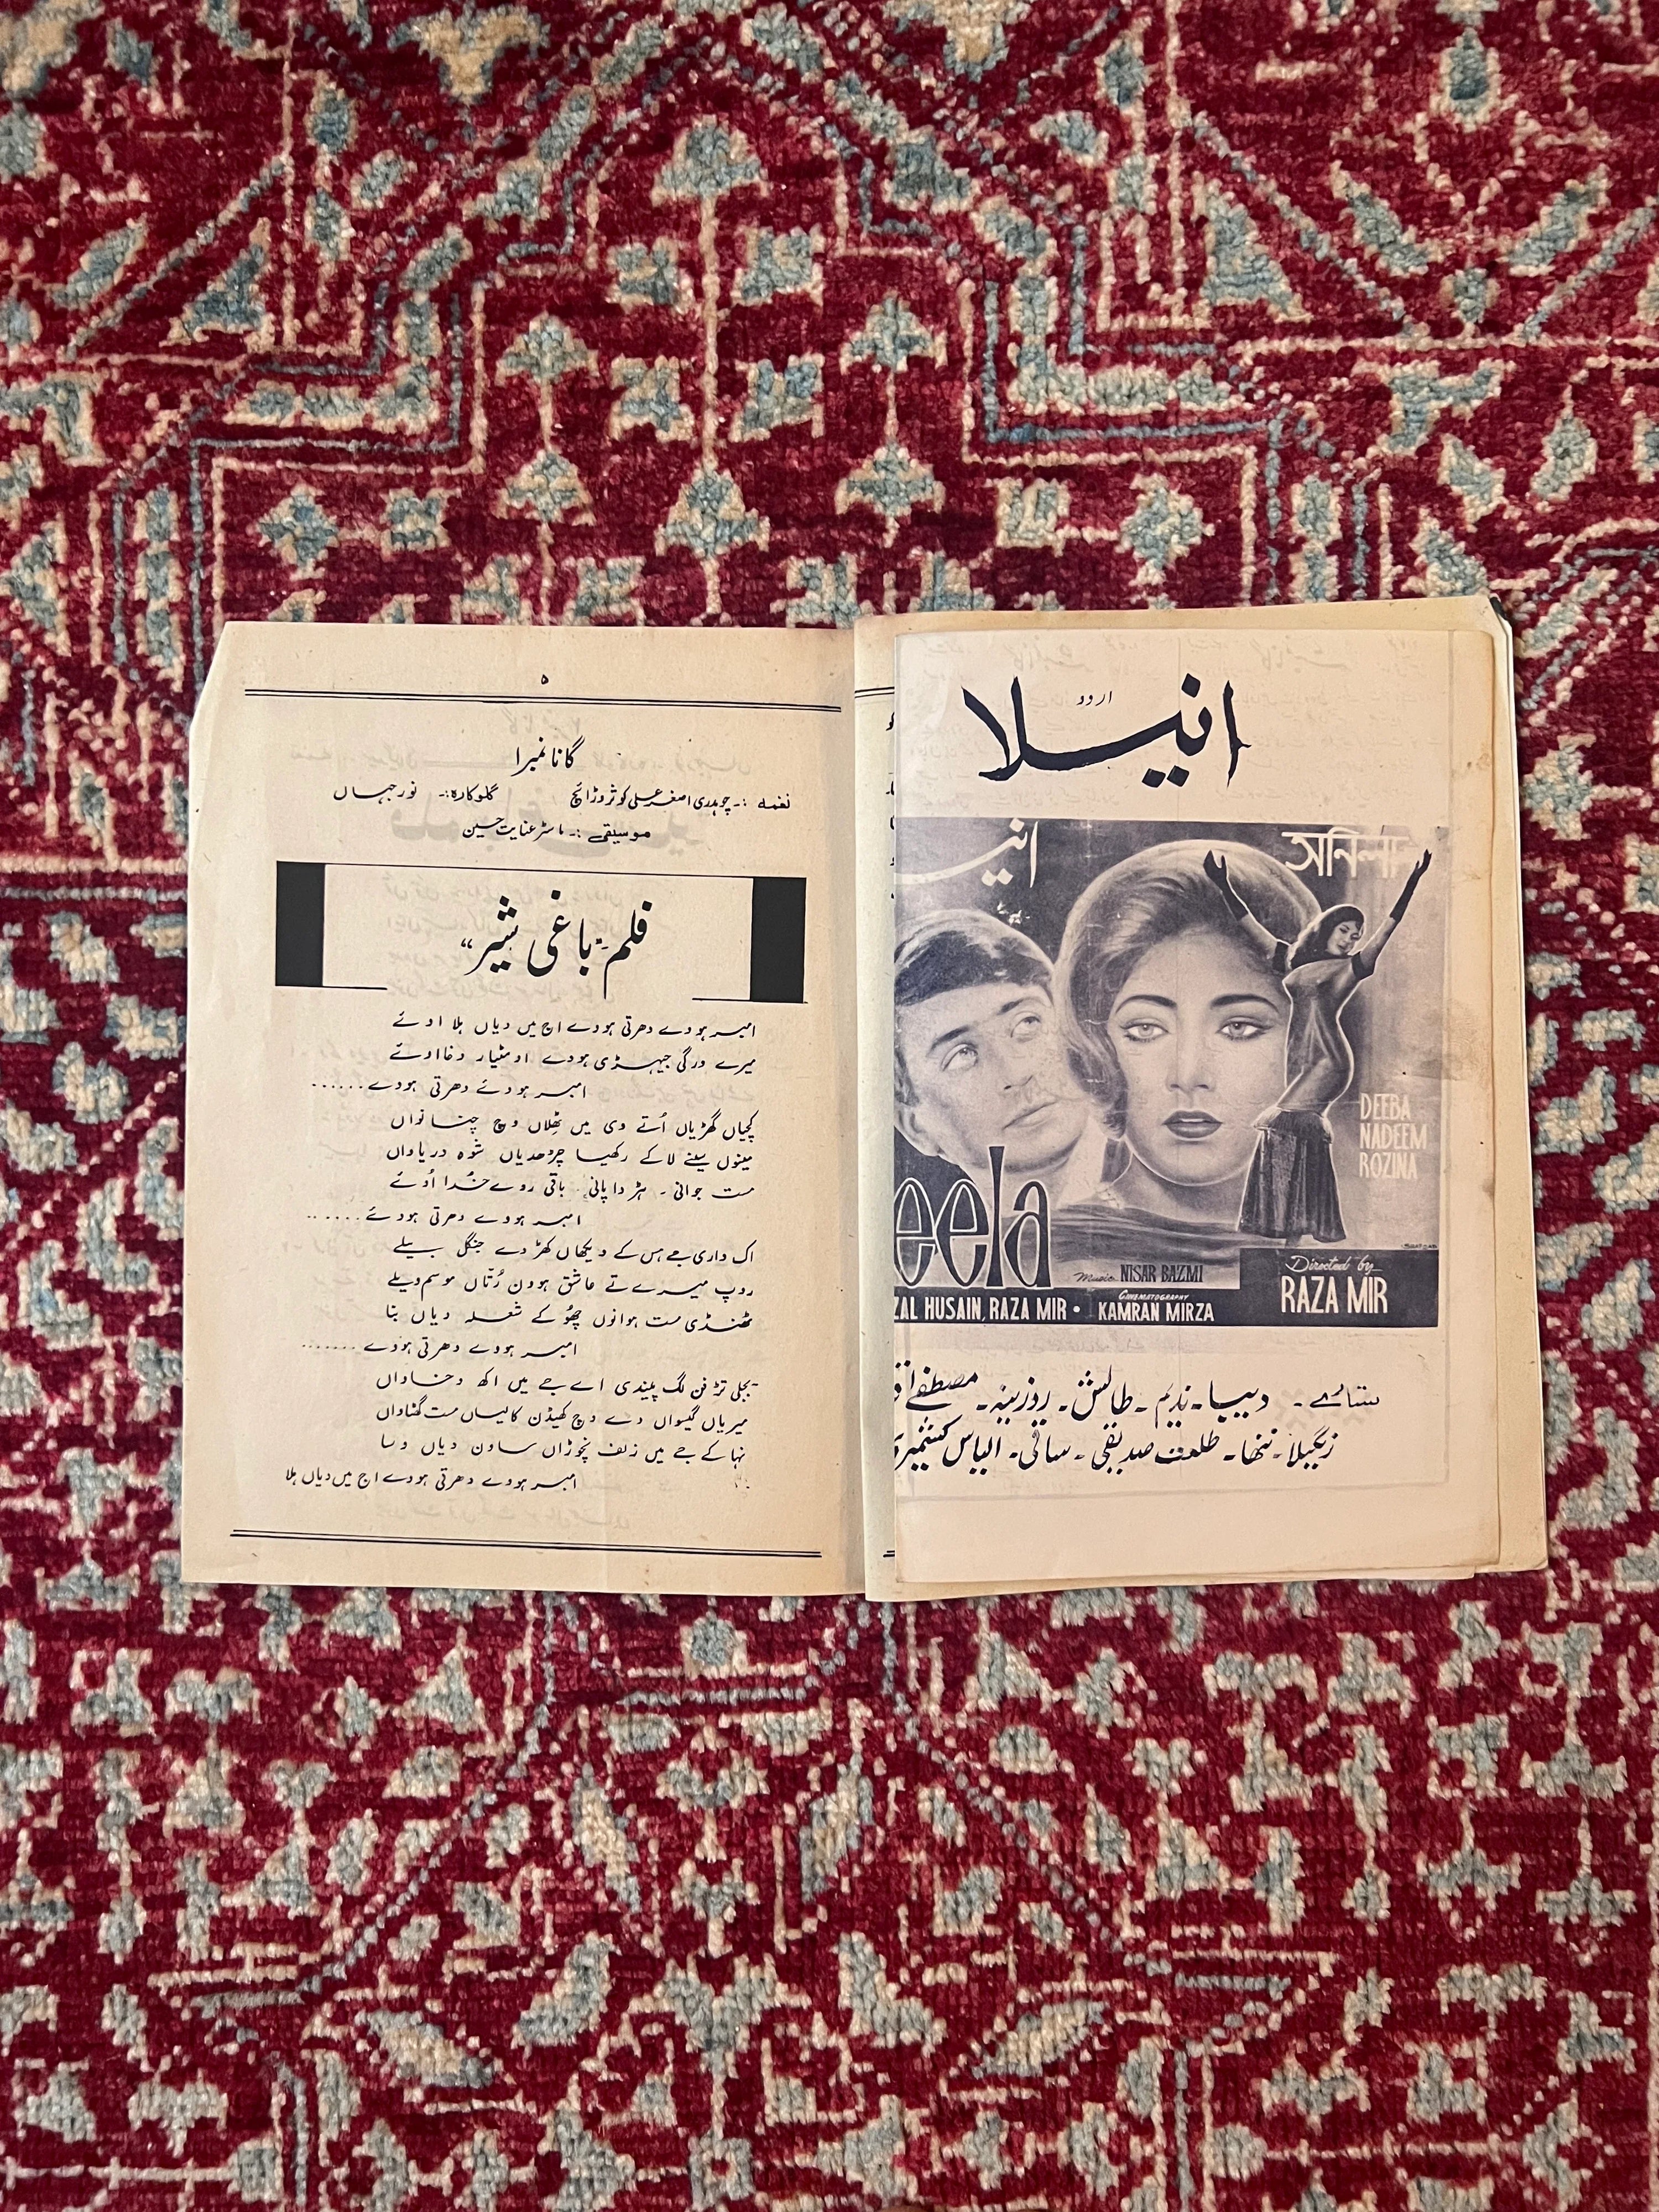 ۵
گانا نمبر ۱
نغمہ :۔ چوہدری اصغر علی کوثر وڑائچ گلوکارہ :۔ نورجہاں
موسیقی :۔ ماسٹر عنایت حسین
فلم "باغی شیر"
امبر ہووے دھرتی ہووے اج میں دیاں ہلا اوئے
میرے ورگی جیہڑی ہووے او مٹیار دغا اوئے
امبر ہووئے دھرتی ہووے......
کچیاں گھڑیاں اُتے وی میں ٹھلاں وچ چنانواں
مینوں سینے لا کے رکھیا چڑھدیاں شوہ دریاواں
مست جوانی ۔ ہڑ دا پانی ۔ باقی روے خُدا اُوئے
امبر ہووے دھرتی ہووئے......
اک واری جے ہس کے ویکھاں کھڑ دے جنگل بیلے
روپ میرے تے عاشق ہوون رُتاں موسم ویلے
ٹھنڈی مست ہوانوں چھُو کے شعلہ دیاں بنا
امبر ہووے دھرتی ہووے.......
بجلی تڑفن لگ پیندی اے جے میں اکھ دخاواں
میریاں گیسواں دے وچ کھیڈن کالیاں مست گھٹاواں
نہا کے جے میں زلف نچوڑاں ساون دیاں وسا
امبر ہووے دھرتی ہووے اج میں دیاں ہلا
انیلا
اردو
انیـ
অনিলা
DEEBA
NADEEM
ROZINA
eela
Music NISAR BAZMI
Directed by
RAZA MIR
ZAL HUSAIN, RAZA MIR • CINEMATOGRAPHY KAMRAN MIRZA
ستارے ۔ دیبا ۔ ندیم ۔ طالش ۔ روزینہ ۔ مصطفےٰ
رنگیلا ۔ ننھا ۔ طلعت صدیقی ۔ ساقی ۔ الیاس کشمیری